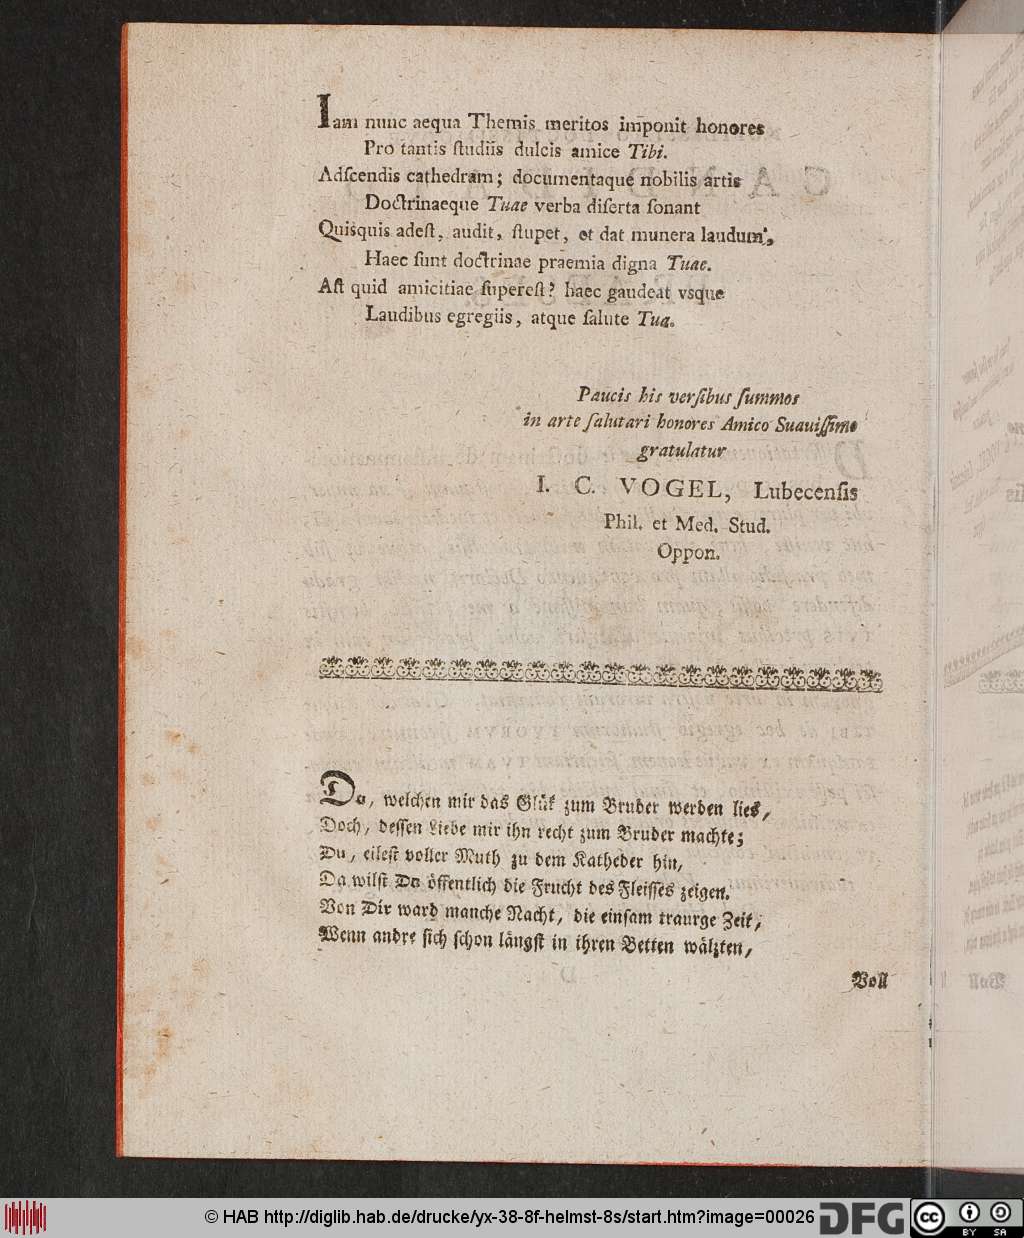 Iam nunc aequa Themis meritos imponit honores
Pro tantis ſtudiis dulcis amice Tibi.
Adſcendis cathedram; documentaque nobilis artis
Doctrinaeque Tuae verba diſerta ſonant
Quisquis adeſt, audit, ſtupet, et dat munera laudum,
Haec ſunt doctrinae praemia digna Tuae.
Aſt quid amicitiae ſupereſt? haec gaudeat vsque
Laudibus egregiis, atque ſalute Tua.
Paucis his verſibus ſummos
in arte ſalutari honores Amico Suauiſſimo
gratulatur
I. C. VOGEL, Lubecenſis
Phil. et Med. Stud.
Oppon.
Du, welchen mir das Glük zum Bruder werden lies,
Doch, deſſen Liebe mir ihn recht zum Bruder machte;
Du, eileſt voller Muth zu dem Katheder hin,
Da wilſt Du öffentlich die Frucht des Fleiſſes zeigen.
Von Dir ward manche Nacht, die einſam traurge Zeit,
Wenn andre ſich ſchon längſt in ihren Betten wälzten,
Voll
© HAB http://diglib.hab.de/drucke/yx-38-8f-helmst-8s/start.htm?image=00026
DFG
cc
BY SA